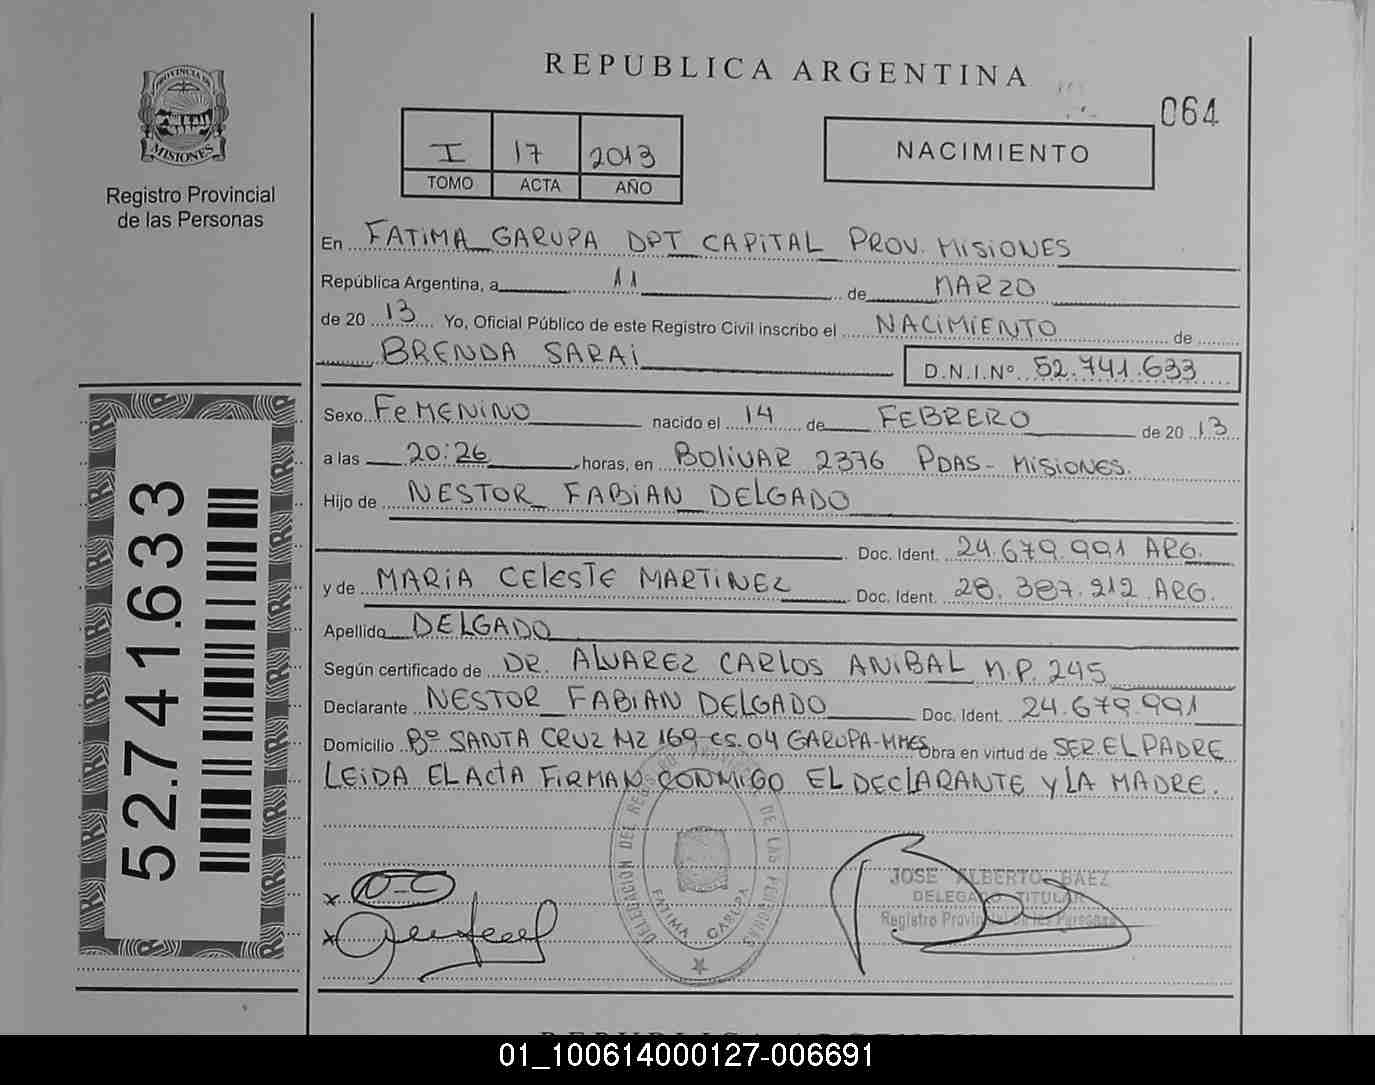 REPUBLICA ARGENTINA
064
PROVINCIA DE
MISIONES
Registro Provincial
de las Personas
I 17 2013
TOMO ACTA AÑO
NACIMIENTO
En FATIMA GARUPA DPT CAPITAL PROV. MISIONES
República Argentina, a 11 de MARZO
de 20 13 Yo, Oficial Público de este Registro Civil inscribo el NACIMIENTO de
BRENDA SARAI D.N.I.Nº 52.741.633
Sexo FEMENINO nacido el 14 de FEBRERO de 20 13
a las 20:26 horas, en BOLIVAR 2376 PDAS- MISIONES.
Hijo de NESTOR FABIAN DELGADO
Doc. Ident. 24.679.991 ARG.
y de MARIA CELESTE MARTINEZ Doc. Ident. 28.387.212 ARG.
Apellido DELGADO
Según certificado de DR. ALVAREZ CARLOS ANIBAL M.P. 245
Declarante NESTOR FABIAN DELGADO Doc. Ident. 24.679.991
Domicilio Bº SANTA CRUZ MZ 169-CS.04 GARUPA-MNES Obra en virtud de SER EL PADRE
LEIDA EL ACTA FIRMAN CONMIGO EL DECLARANTE Y LA MADRE.
52.741.633
DELEGACION DEL REGISTRO PROVINCIAL DE LAS PERSONAS
FATIMA GARUPA
JOSE ALBERTO BAEZ
DELEGADO TITULAR
Registro Provincial de las Personas
01_100614000127-006691